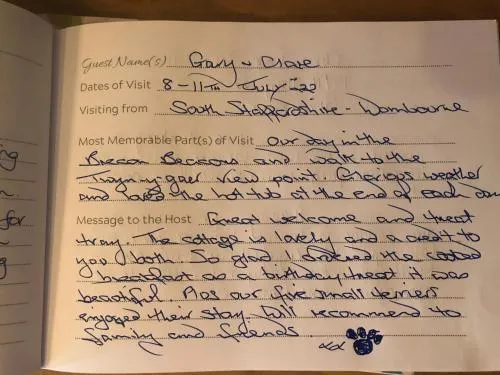 Guest Name(s) Gary & Clare
Dates of Visit 8-11TH JULY 22
Visiting from South Staffordshire - Wombourne
Most Memorable Part(s) of Visit Our day in the
Brecon Beacons and walk to the
view point. Glorious weather
and loved the hot tub at the end of each day
Message to the Host Great welcome and treat
tray. The cottage is lovely and a credit to
you both. So glad I ordered the cooked
breakfast as a birthday treat it was
beautiful. Also our five small terriers
enjoyed their stay. Will recommend to
family and friends.
ing
n.
for
g